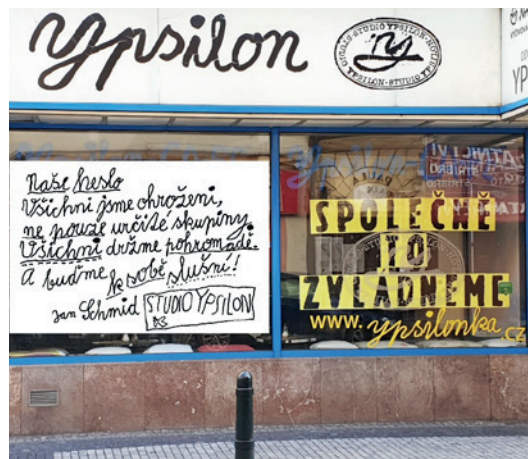 ypsilon
STUDIO YPSILON
Naše heslo
Všichni jsme ohroženi,
ne pouze určité skupiny.
Všichni držme pohromadě.
A buďme k sobě slušní!
Jan Schmid STUDIO YPSILON
SPOLEČNĚ
TO
ZVLÁDNEME
www.ypsilonka.cz
YP